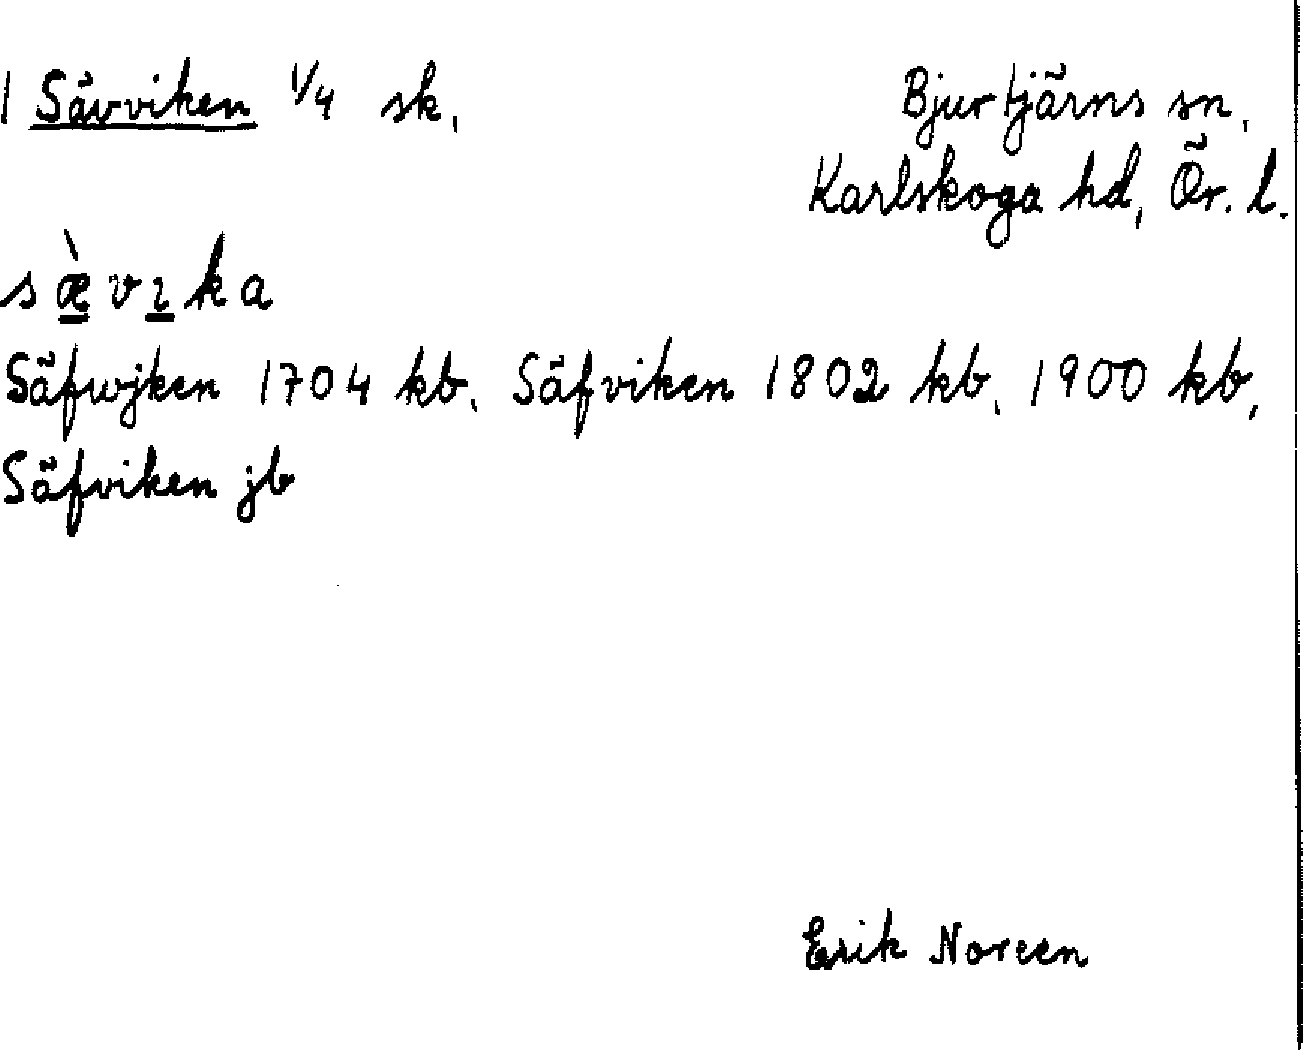 1 Sävviken 1/4 sk.
Bjurtjärns sn.
Karlskoga hd, Ör. l.
sæ̀vıka
Säfwjken 1704 kb. Säfviken 1802 kb. 1900 kb,
Säfviken jb
Erik Noreen